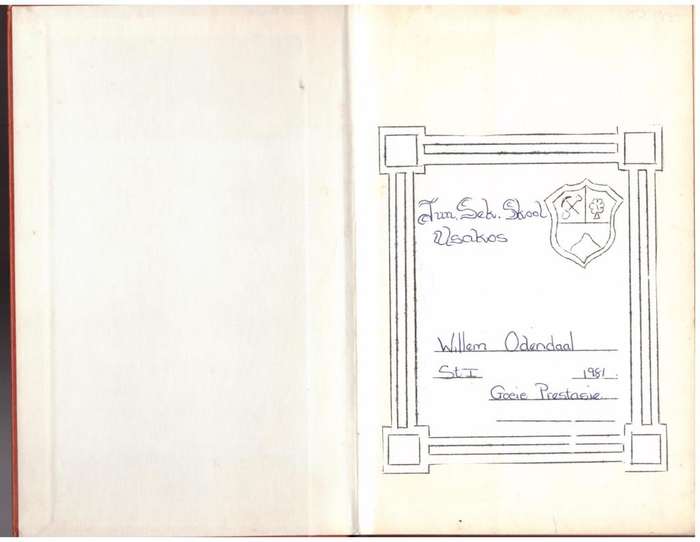 Jun. Sek. Skool
Usakos
Willem Odendaal
St I 1981.
Goeie Prestasie.